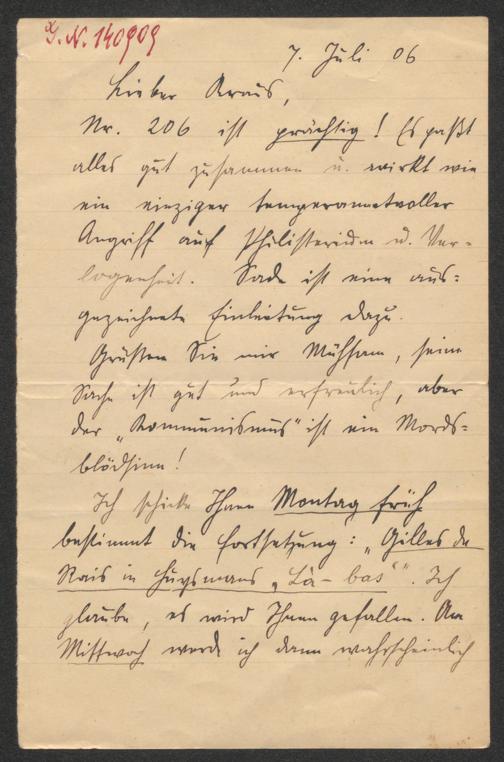 G. N. 140909
7. Juli 06
Lieber Kraus,
Nr. 206 ist prächtig! Es paßt
alles gut zusammen u. wirkt wie
ein einziger temperamentvoller
Angriff auf Philisterium u. Ver-
logenheit. Sade ist eine aus-
gezeichnete Einleitung dazu.
Grüßen Sie mir Mühsam, seine
Sache ist gut und erfreulich, aber
der „Kommunismus" ist ein Mords-
blödsinn!
Ich schicke Ihnen Montag früh
bestimmt die Fortsetzung: „Gilles de
Rais in Huysmans „Là-bas"". Ich
glaube, es wird Ihnen gefallen. Am
Mittwoch werde ich dann wahrscheinlich